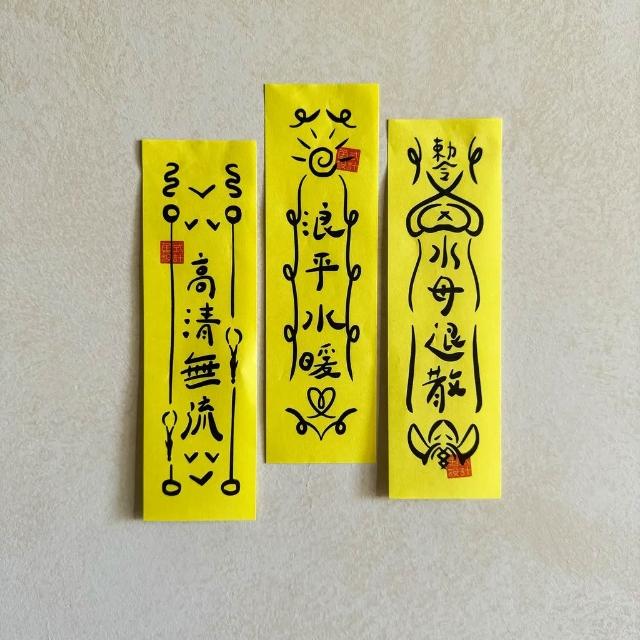 高清無流
浪平水暖
勅令
水母退散